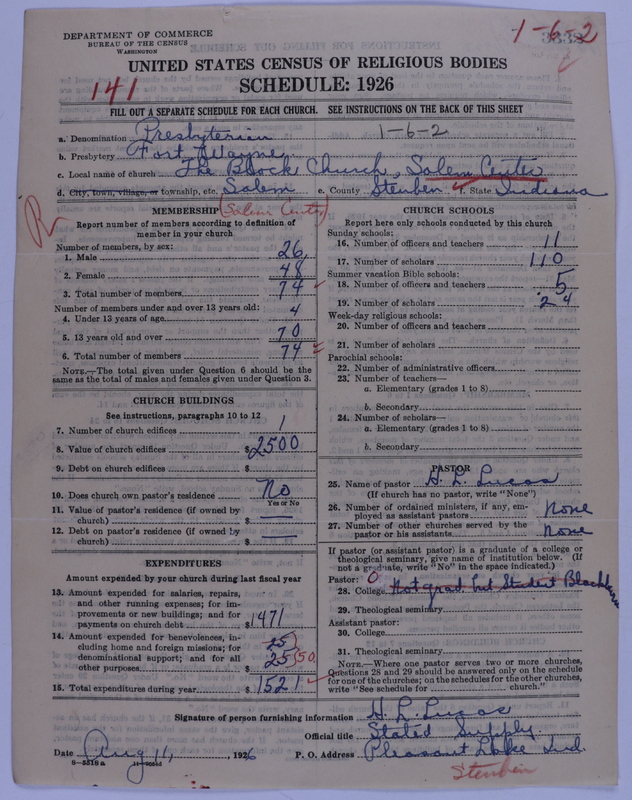 DEPARTMENT OF COMMERCE
BUREAU OF THE CENSUS
WASHINGTON
1-6-2
UNITED STATES CENSUS OF RELIGIOUS BODIES
SCHEDULE: 1926
141
FILL OUT A SEPARATE SCHEDULE FOR EACH CHURCH. SEE INSTRUCTIONS ON THE BACK OF THIS SHEET
a. Denomination Presbyterian 1-6-2
b. Presbytery Fort Wayne
c. Local name of church The Block Church, Salem Center
d. City, town, village, or township, etc. Salem e. County Steuben f. State Indiana
R
MEMBERSHIP (Salem Center)
Report number of members according to definition of member in your church
Number of members, by sex:
1. Male 26
2. Female 48
3. Total number of members 74
Number of members under and over 13 years old:
4. Under 13 years of age 4
5. 13 years old and over 70
6. Total number of members 74
NOTE.—The total given under Question 6 should be the same as the total of males and females given under Question 3.
CHURCH BUILDINGS
See instructions, paragraphs 10 to 12
7. Number of church edifices 1
8. Value of church edifices $2500
9. Debt on church edifices $
10. Does church own pastor's residence No
Yes or No
11. Value of pastor's residence (if owned by church) $ —
12. Debt on pastor's residence (if owned by church) $ —
EXPENDITURES
Amount expended by your church during last fiscal year
13. Amount expended for salaries, repairs, and other running expenses; for improvements or new buildings; and for payments on church debt $1471
14. Amount expended for benevolences, including home and foreign missions; for denominational support; and for all other purposes $ 25 25 50
15. Total expenditures during year $1521
CHURCH SCHOOLS
Report here only schools conducted by this church
Sunday schools:
16. Number of officers and teachers 11
17. Number of scholars 110
Summer vacation Bible schools:
18. Number of officers and teachers 5
19. Number of scholars 24
Week-day religious schools:
20. Number of officers and teachers
21. Number of scholars
Parochial schools:
22. Number of administrative officers
23. Number of teachers—
a. Elementary (grades 1 to 8)
b. Secondary
24. Number of scholars—
a. Elementary (grades 1 to 8)
b. Secondary
PASTOR
25. Name of pastor H. L. Lucas
(If church has no pastor, write "None")
26. Number of ordained ministers, if any, employed as assistant pastors None
27. Number of other churches served by the pastor or his assistants None
If pastor (or assistant pastor) is a graduate of a college or theological seminary, give name of institution below. (If not a graduate, write "No" in the space indicated.)
Pastor: O
28. College Not grad. but Student Blackburn
29. Theological seminary
Assistant pastor:
30. College
31. Theological seminary
NOTE.—Where one pastor serves two or more churches, Questions 28 and 29 should be answered only on the schedule for one of the churches; on the schedules for the other churches, write "See schedule for church."
Signature of person furnishing information H. L. Lucas
Official title Stated Supply
Date Aug 11, 1926 P. O. Address Pleasant Lake Ind.
8-5518a
Steuben